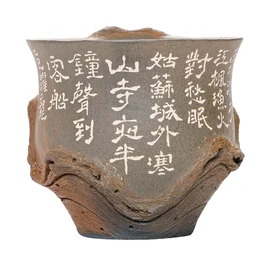 江楓漁火
對愁眠
姑蘇城外寒
山寺夜半
鐘聲到
客船